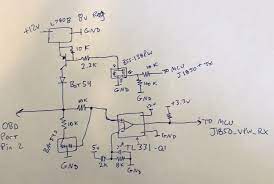 L7808 8v Reg
+12v
GND
10K
2.2K
GND
10K
TO MCU
J1850+ TX
BAT54
GND
10K
+3.3v
OBD
Port
Pin 2
10K
TO MCU
J1850_VPW_RX
GND
GND
5v
TL331-Q1
2K
8K
GND